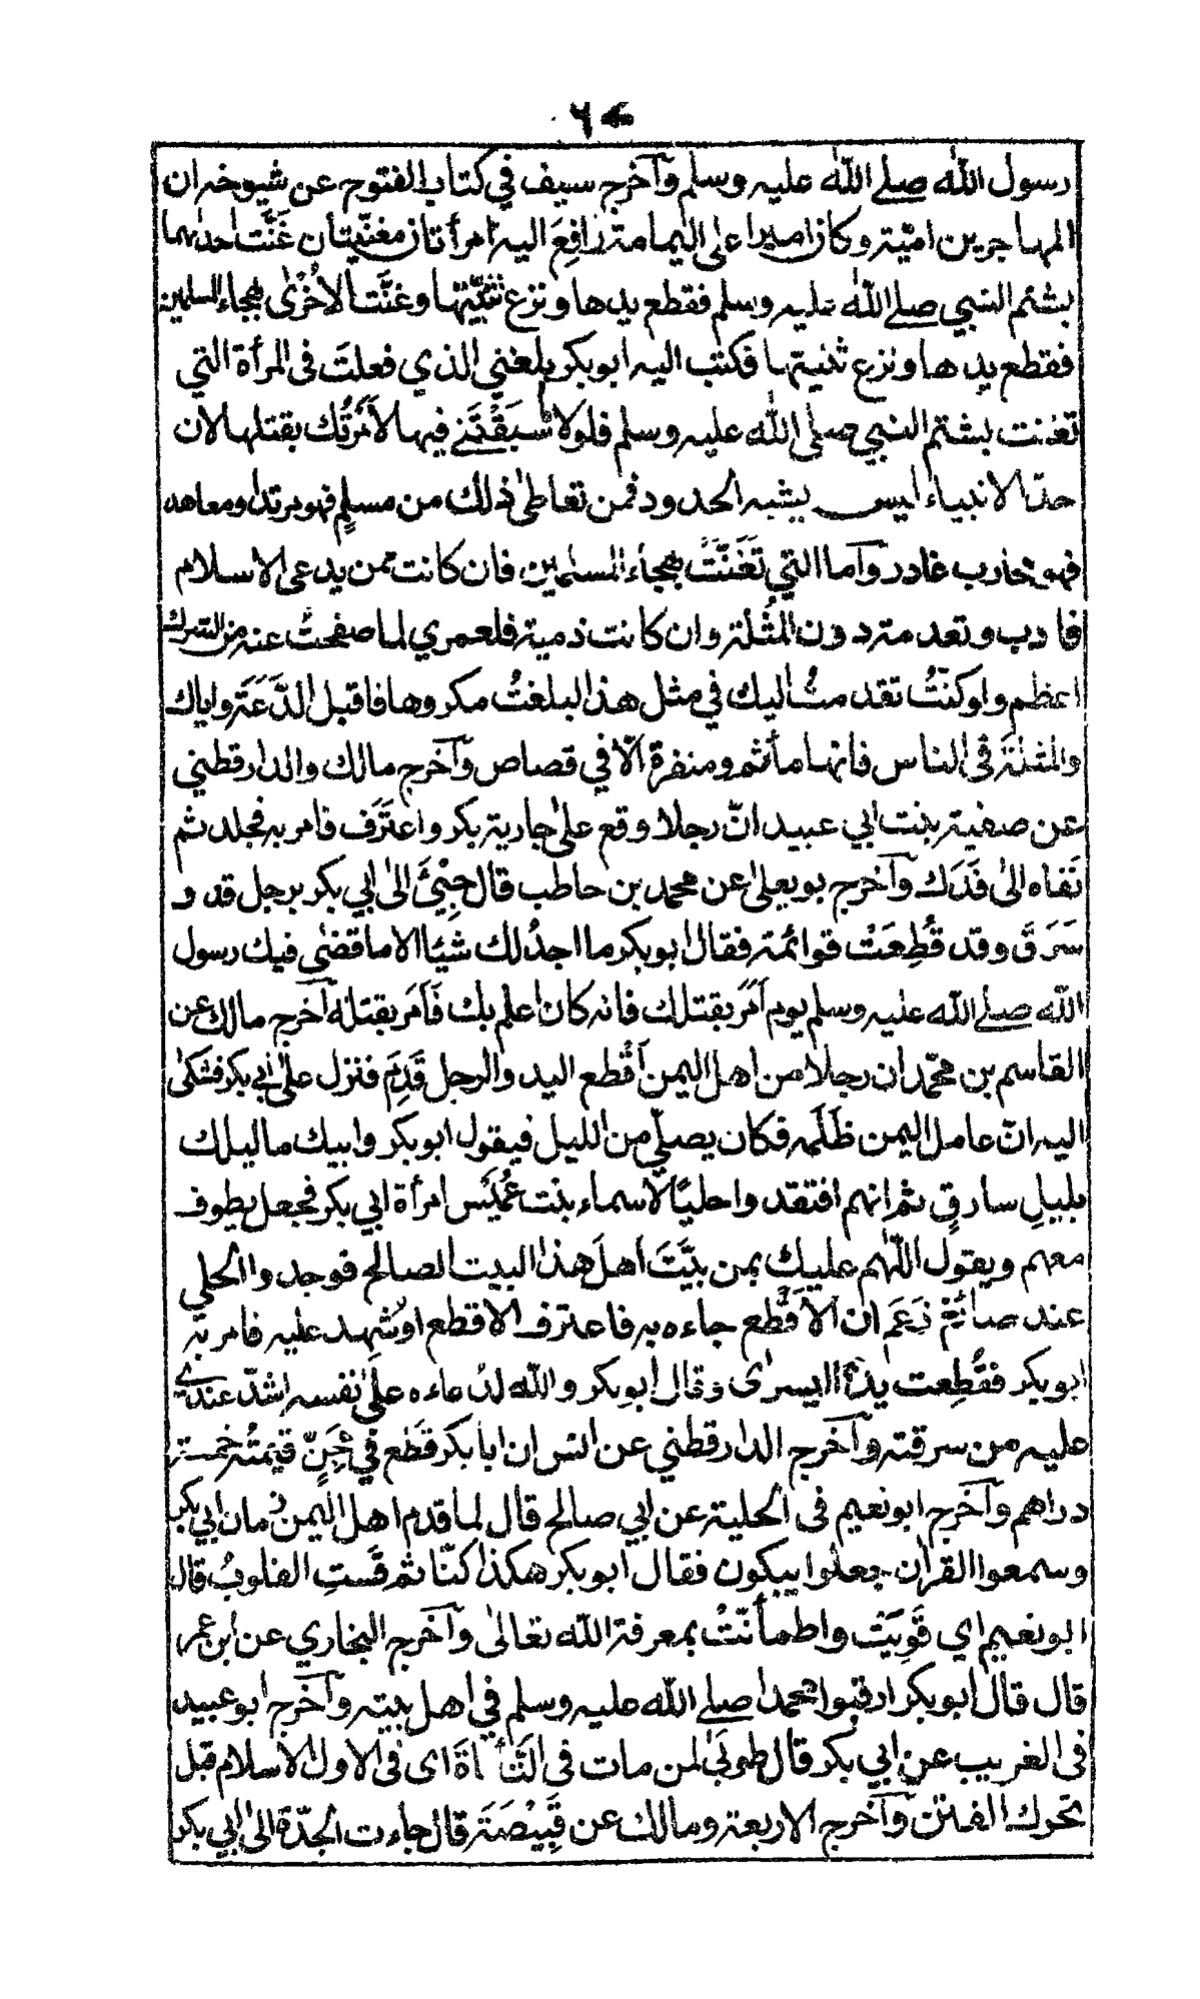 رسول الله صلى الله عليه وسلم وآخرج سيف في كتاب الفتوح عن شيوخه ان
المهاجر بن امية وكان اميرا على اليمامة رُفِعَ اليه امرأتان مغنّيتان غَنَّت احداهما
بشتم النبي صلى الله عليه وسلم فقطع يدها ونزع ثنيّتها وغنَّت الاُخْرٰى بهجاء المسلمين
فقطع يدها ونزع ثنيتها فكتب اليه ابوبكر بلغني الذي فعلتَ فى المرأة التي
تغنت بشتم النبي صلى الله عليه وسلم فلولا سَبَقْتَنِي فيها لاَمَرْتُك بقتلها لان
حدّ الانبياء ليس يشبه الحدود فمن تعاطى ذلك من مسلمٍ فهو مرتد او معاهد
فهو محارب غادر وآما التي تَغَنَّتْ بهجاء المسلمين فان كانت ممن يدعى الاسلام
فادب وتعدمة دون المُثْلة وان كانت ذمية فلعمري لما صفحتُ عنه من الشرك
اعظم ولو كنتُ تقدمتُ اليك في مثل هذا لبلغتُ مكروها فاقبل الدَّعَةَ واياك
والمثلةَ فى الناس فانها مأثم ومنفرة الّا في قصاص وآخرج مالك والدارقطني
عن صفية بنت ابي عبيد انّ رجلا وقع على جارية بكر واعتَرَف فامر به فجلد ثم
نَفاه الى فَدَك وآخرج بويعلى عن محمد بن حاطب قال جِيْئَ الىٰ ابي بكر برجل قد و
سَرَقَ وقد قُطِعَتْ قوائمة فقال ابوبكر ما اجدُ لك شيئا الا ما قضٰي فيك رسول
الله صلى الله عليه وسلم يوم اَمَر بقتلك فانه كان اعلم بك فَاَمَر بقتله آخرج مالك عن
القاسم بن محمّد ان رجلا من اهل اليمن اَقْطع اليد والرجل قَدِمَ فنزل علىٰ ابي بكر فشكىٰ
اليه انّ عامل اليمن ظَلَمه فكان يصلّي من الليل فيقول ابوبكر وابيك ما ليلك
بليلِ سارقٍ ثم انهم افتقدوا حليًا لاَسماء بنت عُمَيْس امرأة ابي بكر فجعل يطوف
معهم ويقول اللّٰهم عليك بمن بيَّتَ اهلَ هذا البيت الصالح فوجدوا الحلي
عند صائغ زَعَمَ ان الاَقْطع جاءه به فاعترف الاقطع او شُهِد عليه فامر به
ابوبكر فقُطِعت يدهُ اليسرٰى وقال ابوبكر والله لدُعاءه علىٰ نفسه اشدّ عندي
عليه من سرقته وآخرج الدارقطني عن انس ان ابا بكر قَطَع في مِجَنّ قيمتُه خمسة
دراهم وآخرج ابونعيم فى الحلية عن ابي صالح قال لما قدم اهل اليمن زمان ابي بكر
وسمعوا القراٰن جعلوا يبكون فقال ابوبكر هكذا كنّا ثم قَسَتِ القلوبُ قال
ابونعيم اي قَوِيَتْ واطمأنّتْ بمعرفة الله تعالىٰ وآخرج البخاري عن ابن عمر
قال قال ابوبكر ارقبوا محمدا صلى الله عليه وسلم في اهل بيته وآخرج ابوعبيد
فى الغريب عن ابي بكر قال طوبىٰ لمن مات فى النَأْنَأة اى فى الاول الاسلام قبل
تحرك الفتن وآخرج الاربعة ومالك عن قَبِيْصَةَ قال جاءت الجدّة الىٰ ابي بكر